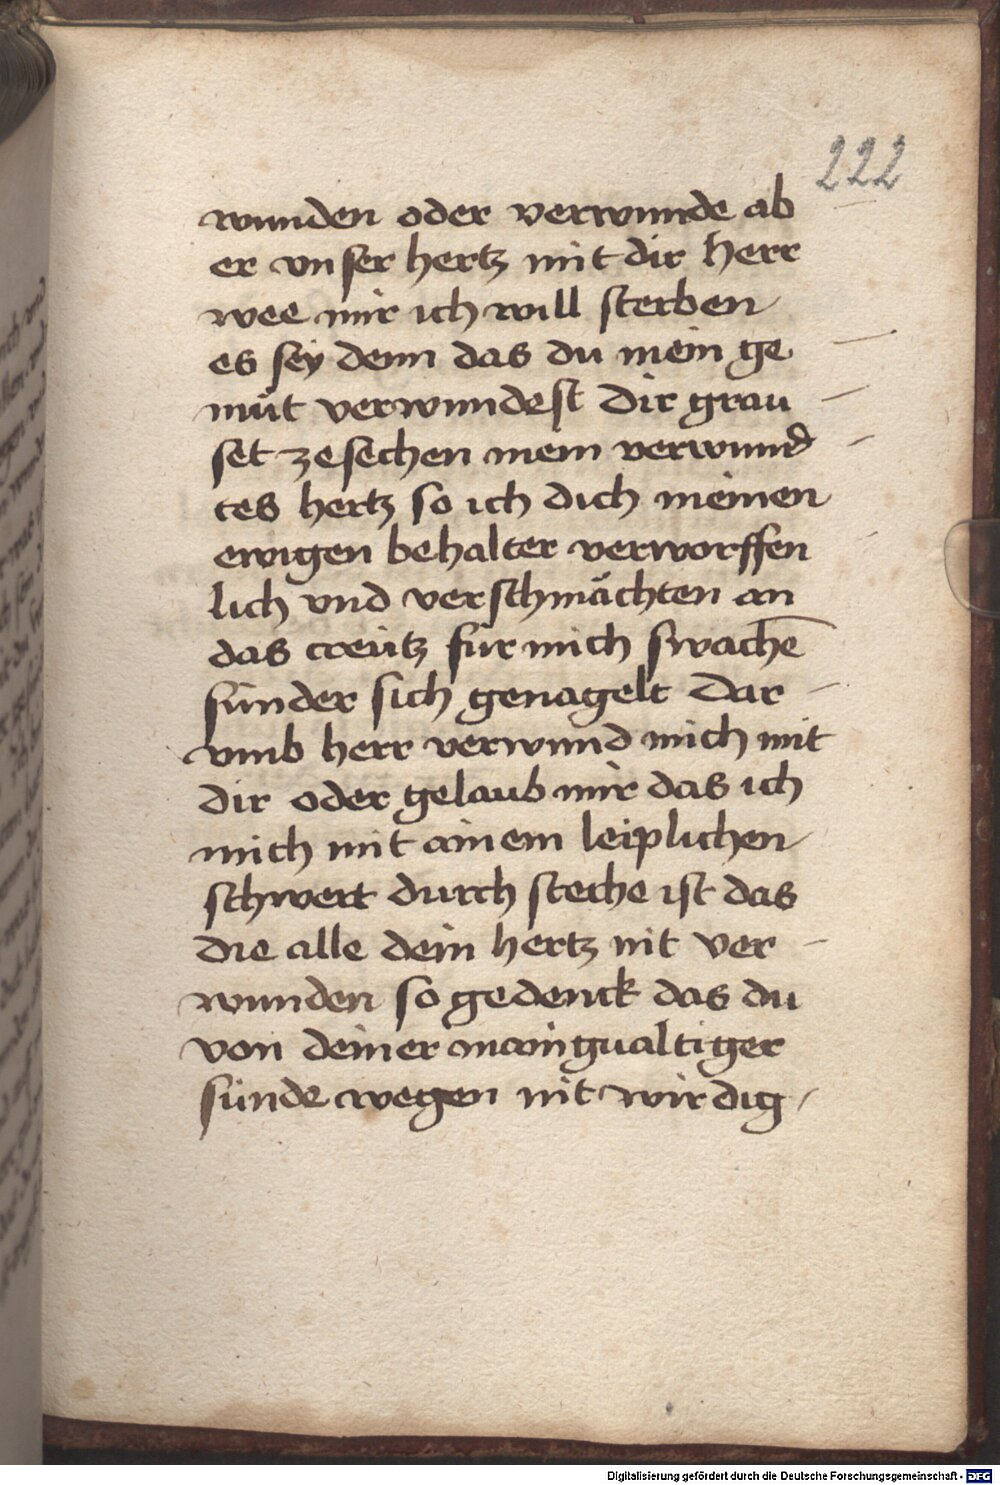 222
wunden oder verwunde ab
er vnser hertz mit dir herr
wee mir ich will sterben
es sey denn das du mein ge
müt verwundest Dir grau
set ze sechen mein verwund
tes hertz so ich dich meinen
ewigen behalter verworffen
lich vnd verschmächten an
das creütz für mich swachē
sünder sich genagelt Dar
vmb herr verwund mich mit
dir oder gelaub mir das ich
mich mit ainem leiplichen
schwert durch steche ist das
die alle dein hertz nit ver
wunden so gedenck das du
von deiner maingualtiger
sünde wegen nit wirdig
Digitalisierung gefördert durch die Deutsche Forschungsgemeinschaft - DFG